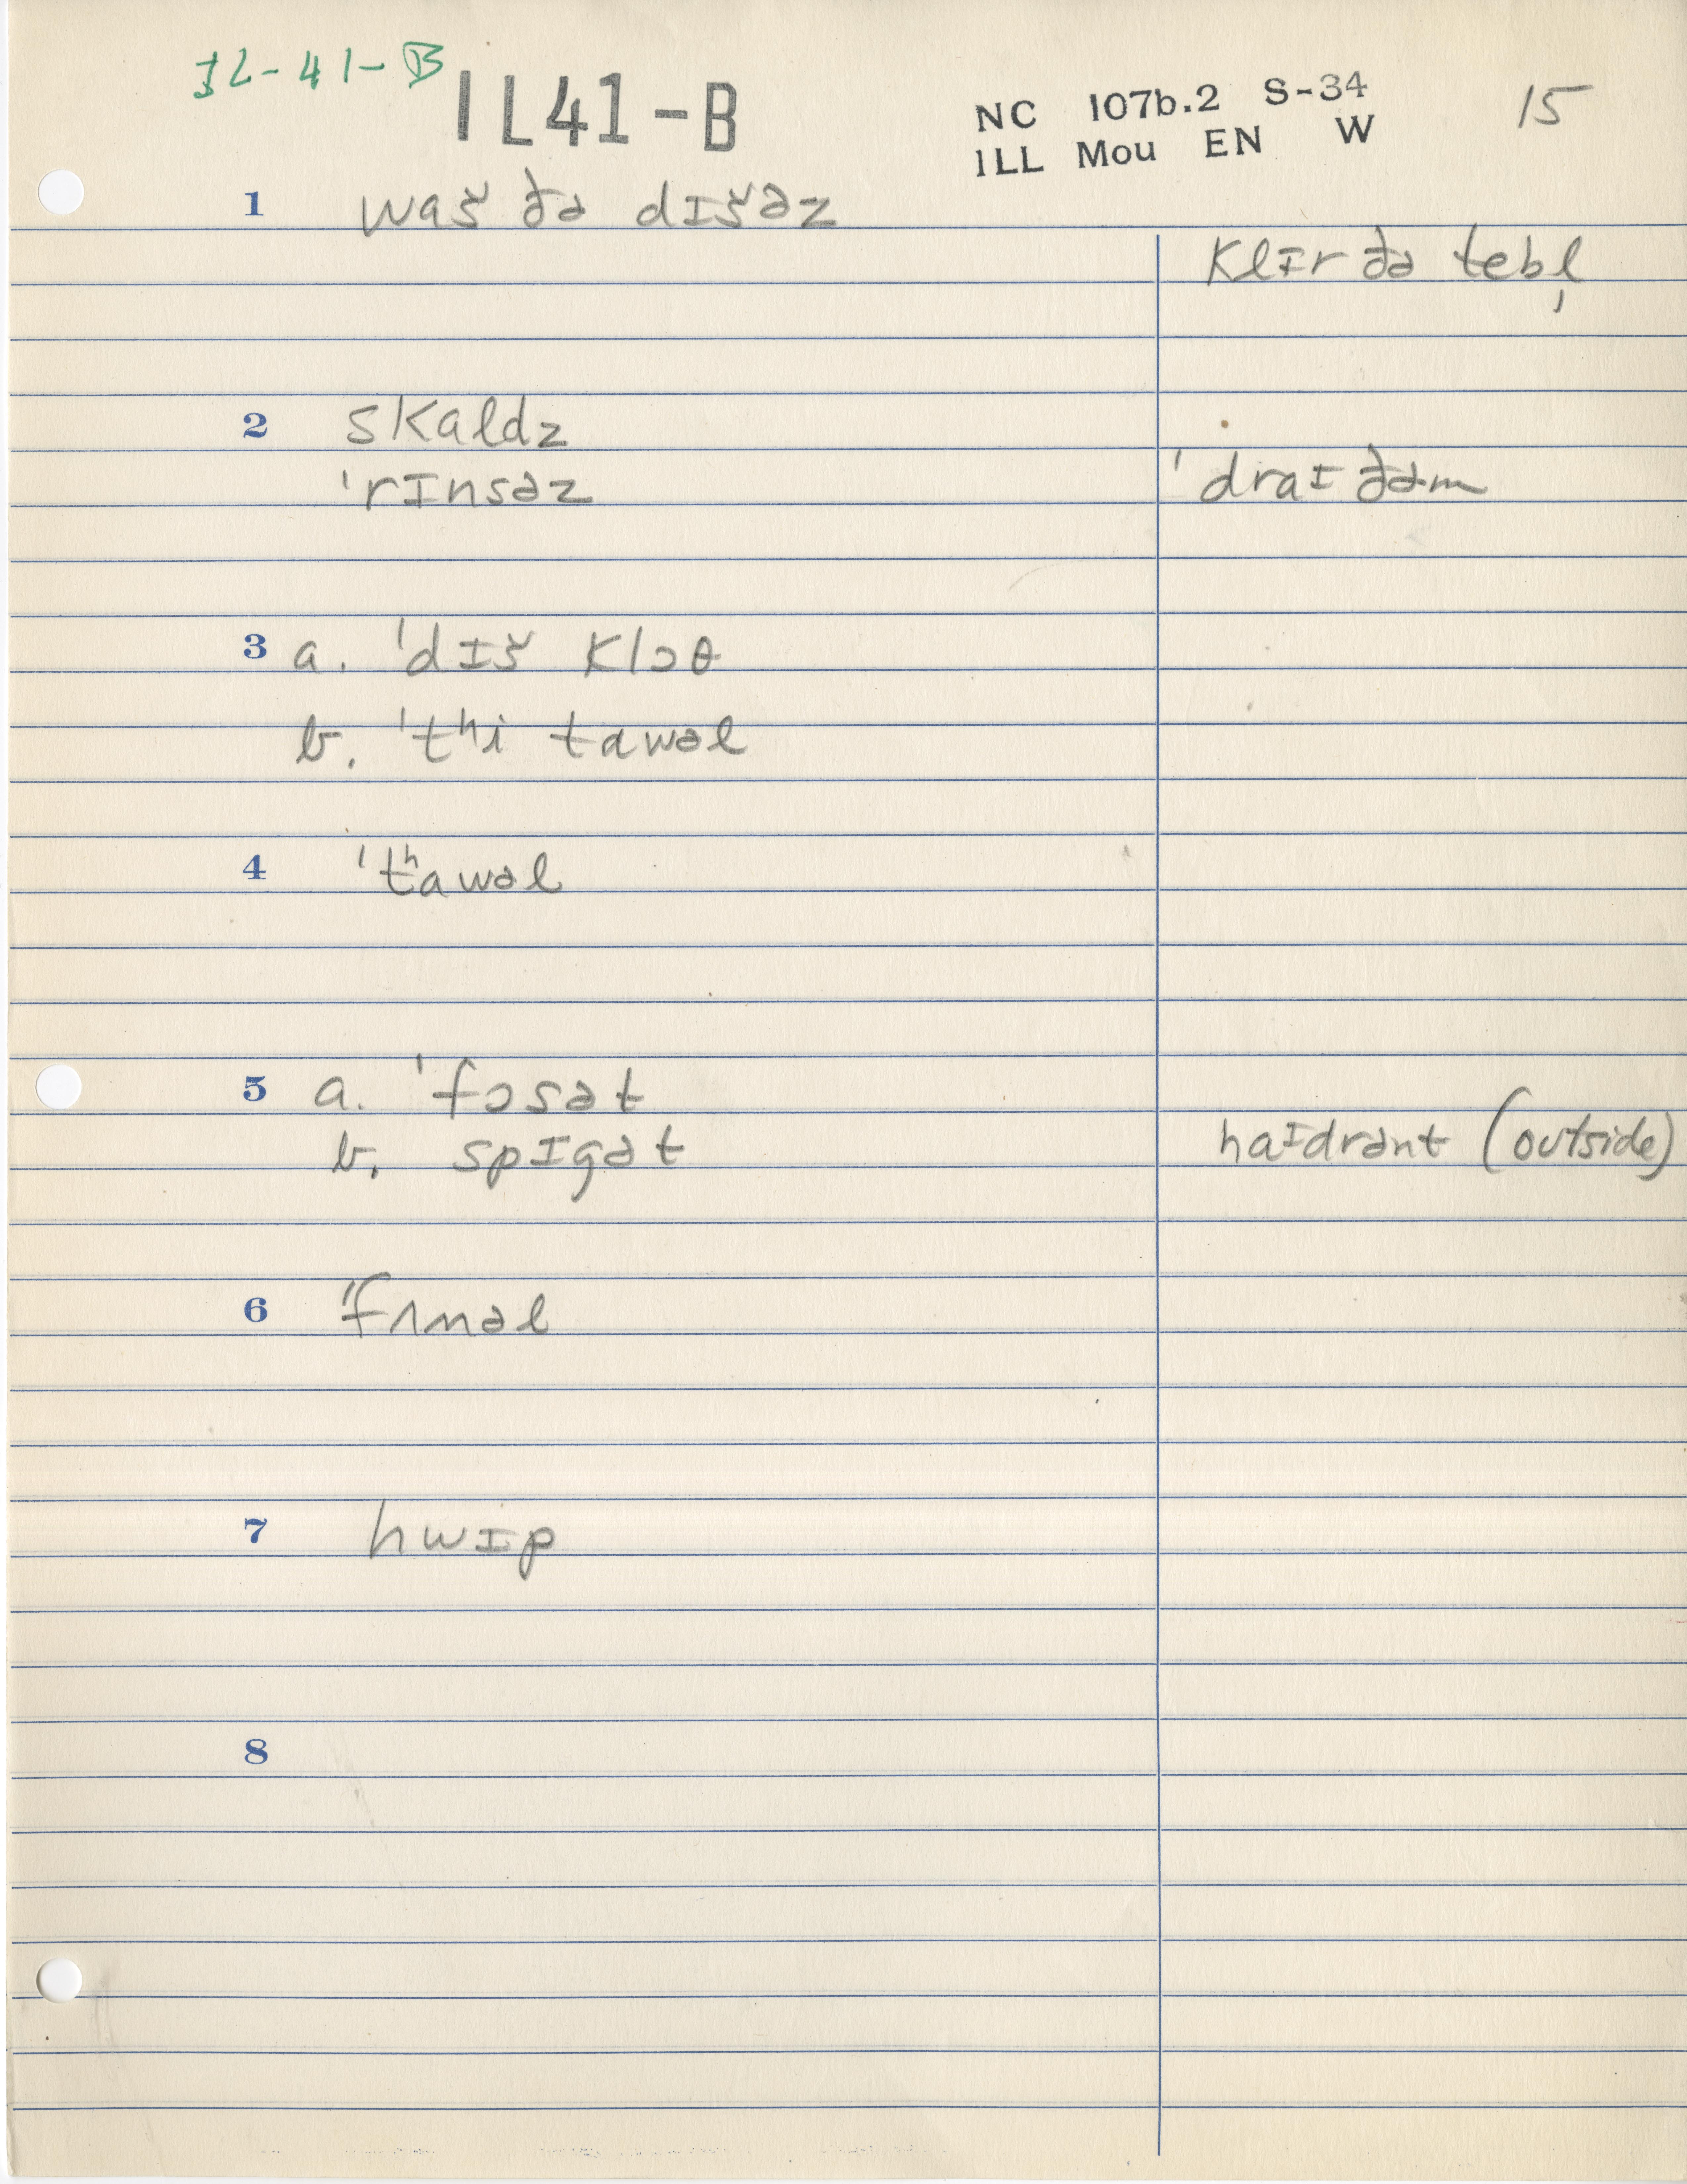 IL-41-B
IL41-B
NC 107b.2 S-34
ILL Mou EN W
15
1 waš ðə dɪšəz
klɪr ðə tebl̩
2 skaldz
ˈrɪnsəz
ˈdraɪ ðəm
3 a. ˈdɪš klɔθ
b. ˈtʰi tawəl
4 ˈtʰawəl
5 a. ˈfɔsət
b. spɪgət
haɪdrənt (outside)
6 ˈfʌnəl
7 hwɪp
8